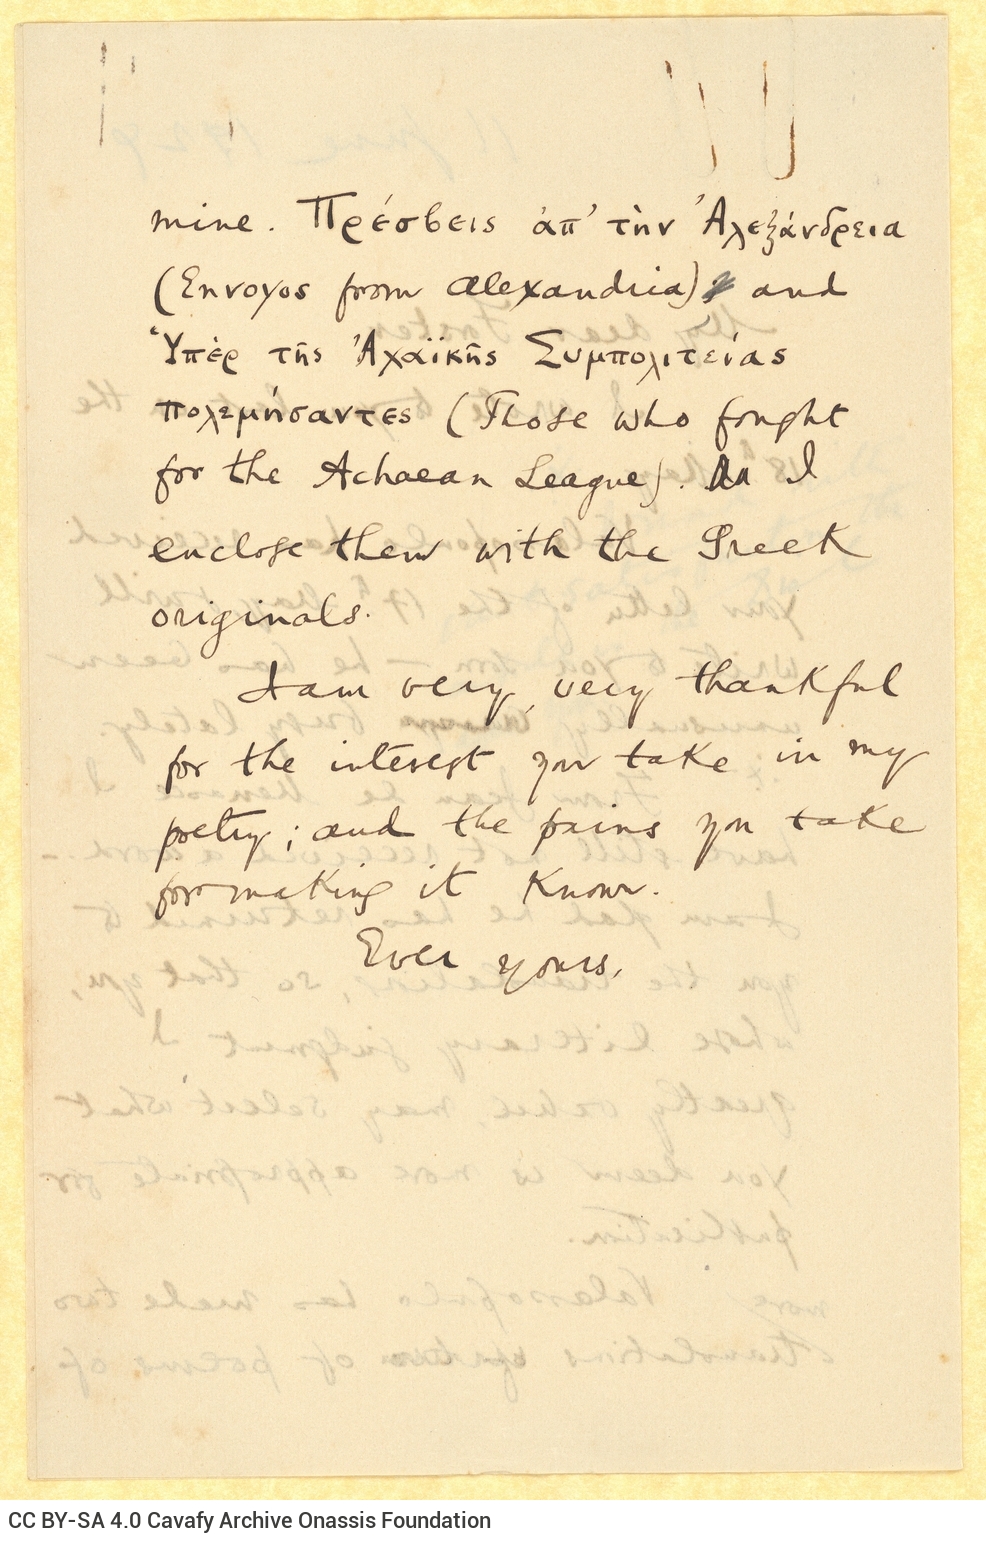 mine. Πρέσβεις ἀπ' τὴν Ἀλεξάνδρεια
(Envoyos from Alexandria) and
Ὑπὲρ τῆς Ἀχαϊκῆς Συμπολιτείας
πολεμήσαντες (Those who fought
for the Achaean League). I
enclose them with the Greek
originals.
I am very, very thankful
for the interest you take in my
poetry; and the pains you take
for making it known.
Ever yours,
CC BY-SA 4.0 Cavafy Archive Onassis Foundation